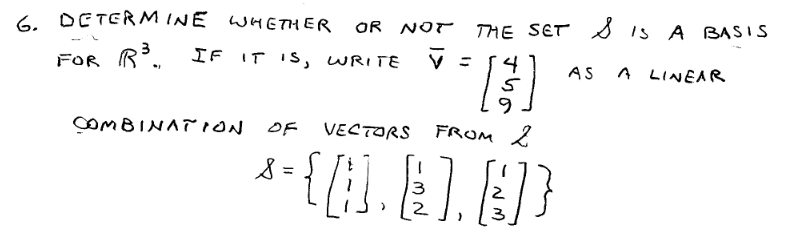 6. DETERMINE WHETHER OR NOT THE SET S IS A BASIS
FOR ℝ³. IF IT IS, WRITE v̄ = [4 5 9] AS A LINEAR
COMBINATION OF VECTORS FROM S
S = { [1 1 1], [1 3 2], [1 2 3] }